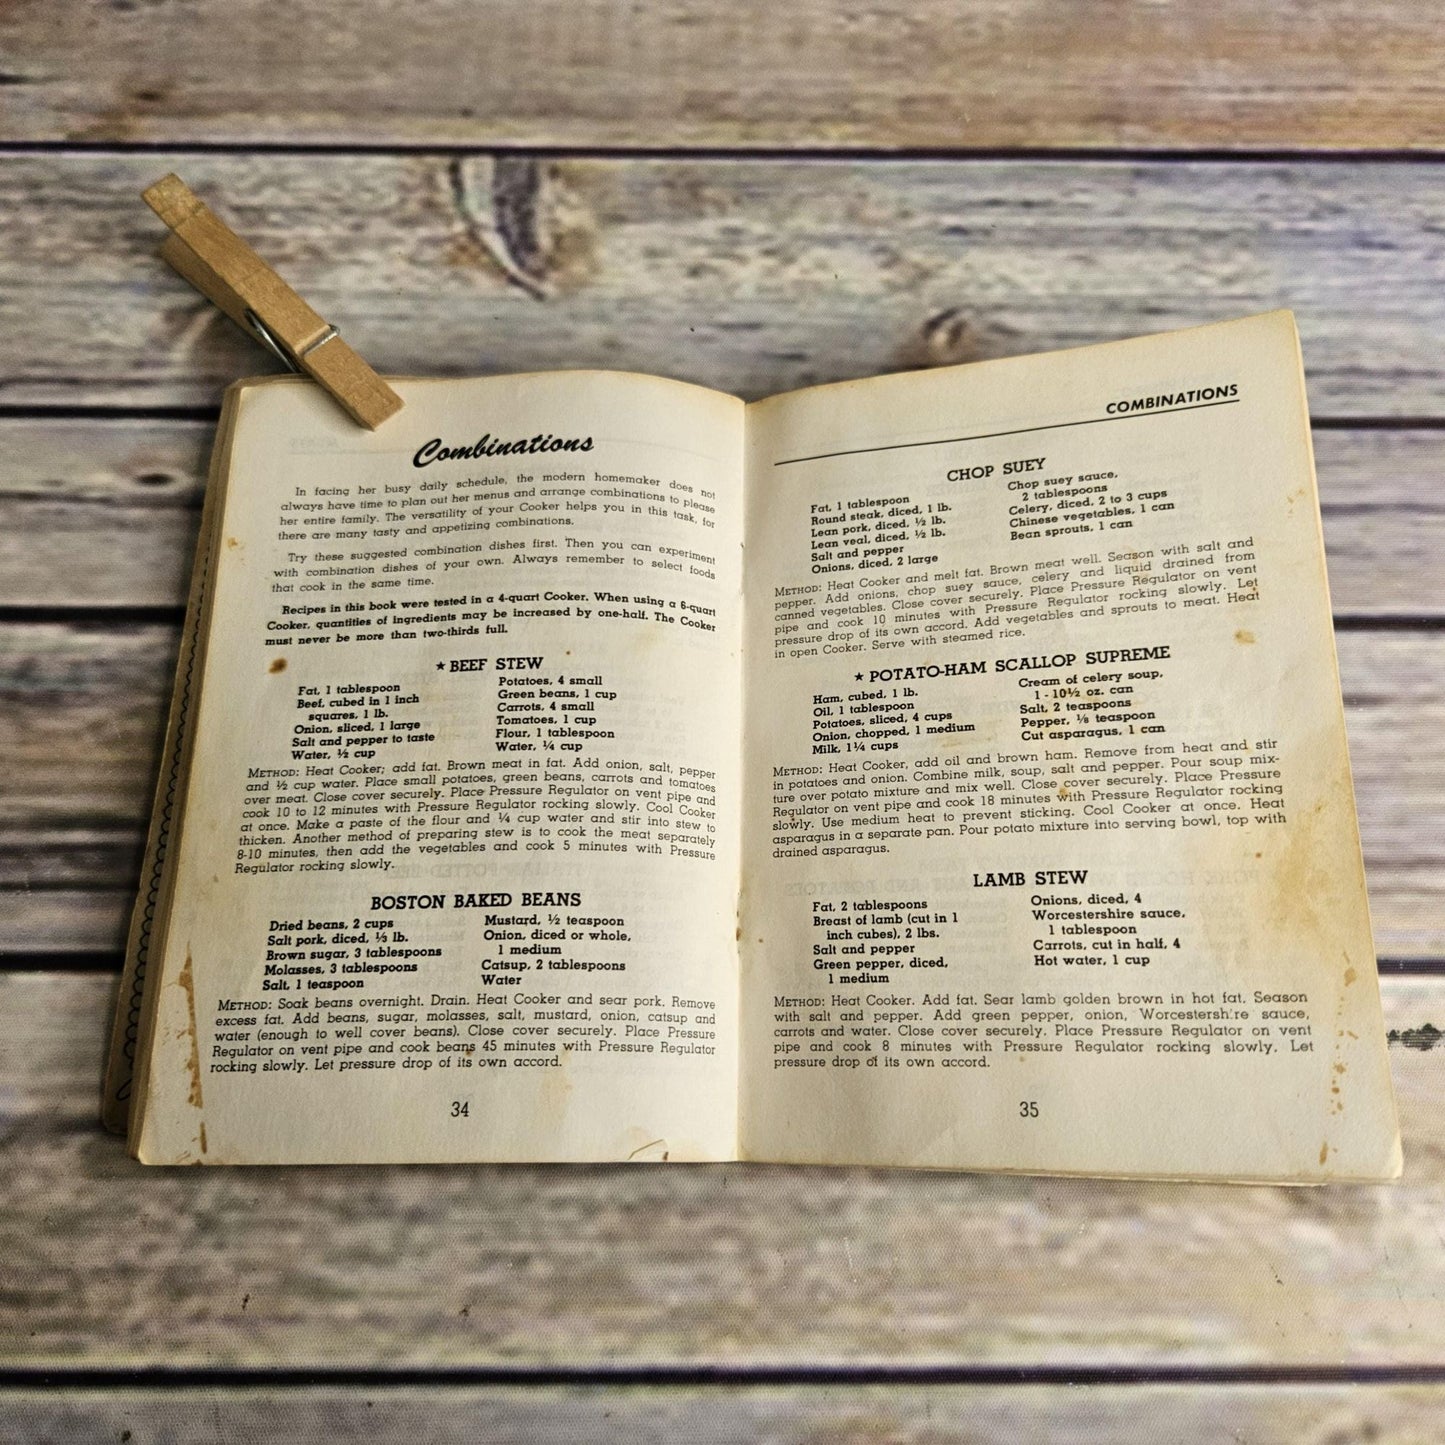 Combinations
In facing her busy daily schedule, the modern homemaker does not
always have time to plan out her menus and arrange combinations to please
her entire family. The versatility of your Cooker helps you in this task, for
there are many tasty and appetizing combinations.
Try these suggested combination dishes first. Then you can experiment
with combination dishes of your own. Always remember to select foods
that cook in the same time.
Recipes in this book were tested in a 4-quart Cooker. When using a 6-quart
Cooker, quantities of ingredients may be increased by one-half. The Cooker
must never be more than two-thirds full.
★ BEEF STEW
Fat, 1 tablespoon
Beef, cubed in 1 inch
squares, 1 lb.
Onion, sliced, 1 large
Salt and pepper to taste
Water, ½ cup
Potatoes, 4 small
Green beans, 1 cup
Carrots, 4 small
Tomatoes, 1 cup
Flour, 1 tablespoon
Water, ¼ cup
METHOD: Heat Cooker; add fat. Brown meat in fat. Add onion, salt, pepper
and ½ cup water. Place small potatoes, green beans, carrots and tomatoes
over meat. Close cover securely. Place Pressure Regulator on vent pipe and
cook 10 to 12 minutes with Pressure Regulator rocking slowly. Cool Cooker
at once. Make a paste of the flour and ¼ cup water and stir into stew to
thicken. Another method of preparing stew is to cook the meat separately
8-10 minutes, then add the vegetables and cook 5 minutes with Pressure
Regulator rocking slowly.
BOSTON BAKED BEANS
Dried beans, 2 cups
Salt pork, diced, ⅓ lb.
Brown sugar, 3 tablespoons
Molasses, 3 tablespoons
Salt, 1 teaspoon
Mustard, ½ teaspoon
Onion, diced or whole,
1 medium
Catsup, 2 tablespoons
Water
METHOD: Soak beans overnight. Drain. Heat Cooker and sear pork. Remove
excess fat. Add beans, sugar, molasses, salt, mustard, onion, catsup and
water (enough to well cover beans). Close cover securely. Place Pressure
Regulator on vent pipe and cook beans 45 minutes with Pressure Regulator
rocking slowly. Let pressure drop of its own accord.
34
COMBINATIONS
CHOP SUEY
Fat, 1 tablespoon
Round steak, diced, 1 lb.
Lean pork, diced, ½ lb.
Lean veal, diced, ½ lb.
Salt and pepper
Onions, diced, 2 large
Chop suey sauce,
2 tablespoons
Celery, diced, 2 to 3 cups
Chinese vegetables, 1 can
Bean sprouts, 1 can
METHOD: Heat Cooker and melt fat. Brown meat well. Season with salt and
pepper. Add onions, chop suey sauce, celery and liquid drained from
canned vegetables. Close cover securely. Place Pressure Regulator on vent
pipe and cook 10 minutes with Pressure Regulator rocking slowly. Let
pressure drop of its own accord. Add vegetables and sprouts to meat. Heat
in open Cooker. Serve with steamed rice.
★ POTATO-HAM SCALLOP SUPREME
Ham, cubed, 1 lb.
Oil, 1 tablespoon
Potatoes, sliced, 4 cups
Onion, chopped, 1 medium
Milk, 1¼ cups
Cream of celery soup,
1 - 10½ oz. can
Salt, 2 teaspoons
Pepper, ⅛ teaspoon
Cut asparagus, 1 can
METHOD: Heat Cooker, add oil and brown ham. Remove from heat and stir
in potatoes and onion. Combine milk, soup, salt and pepper. Pour soup mix-
ture over potato mixture and mix well. Close cover securely. Place Pressure
Regulator on vent pipe and cook 18 minutes with Pressure Regulator rocking
slowly. Use medium heat to prevent sticking. Cool Cooker at once. Heat
asparagus in a separate pan. Pour potato mixture into serving bowl, top with
drained asparagus.
LAMB STEW
Fat, 2 tablespoons
Breast of lamb (cut in 1
inch cubes), 2 lbs.
Salt and pepper
Green pepper, diced,
1 medium
Onions, diced, 4
Worcestershire sauce,
1 tablespoon
Carrots, cut in half, 4
Hot water, 1 cup
METHOD: Heat Cooker. Add fat. Sear lamb golden brown in hot fat. Season
with salt and pepper. Add green pepper, onion, Worcestershire sauce,
carrots and water. Close cover securely. Place Pressure Regulator on vent
pipe and cook 8 minutes with Pressure Regulator rocking slowly. Let
pressure drop of its own accord.
35